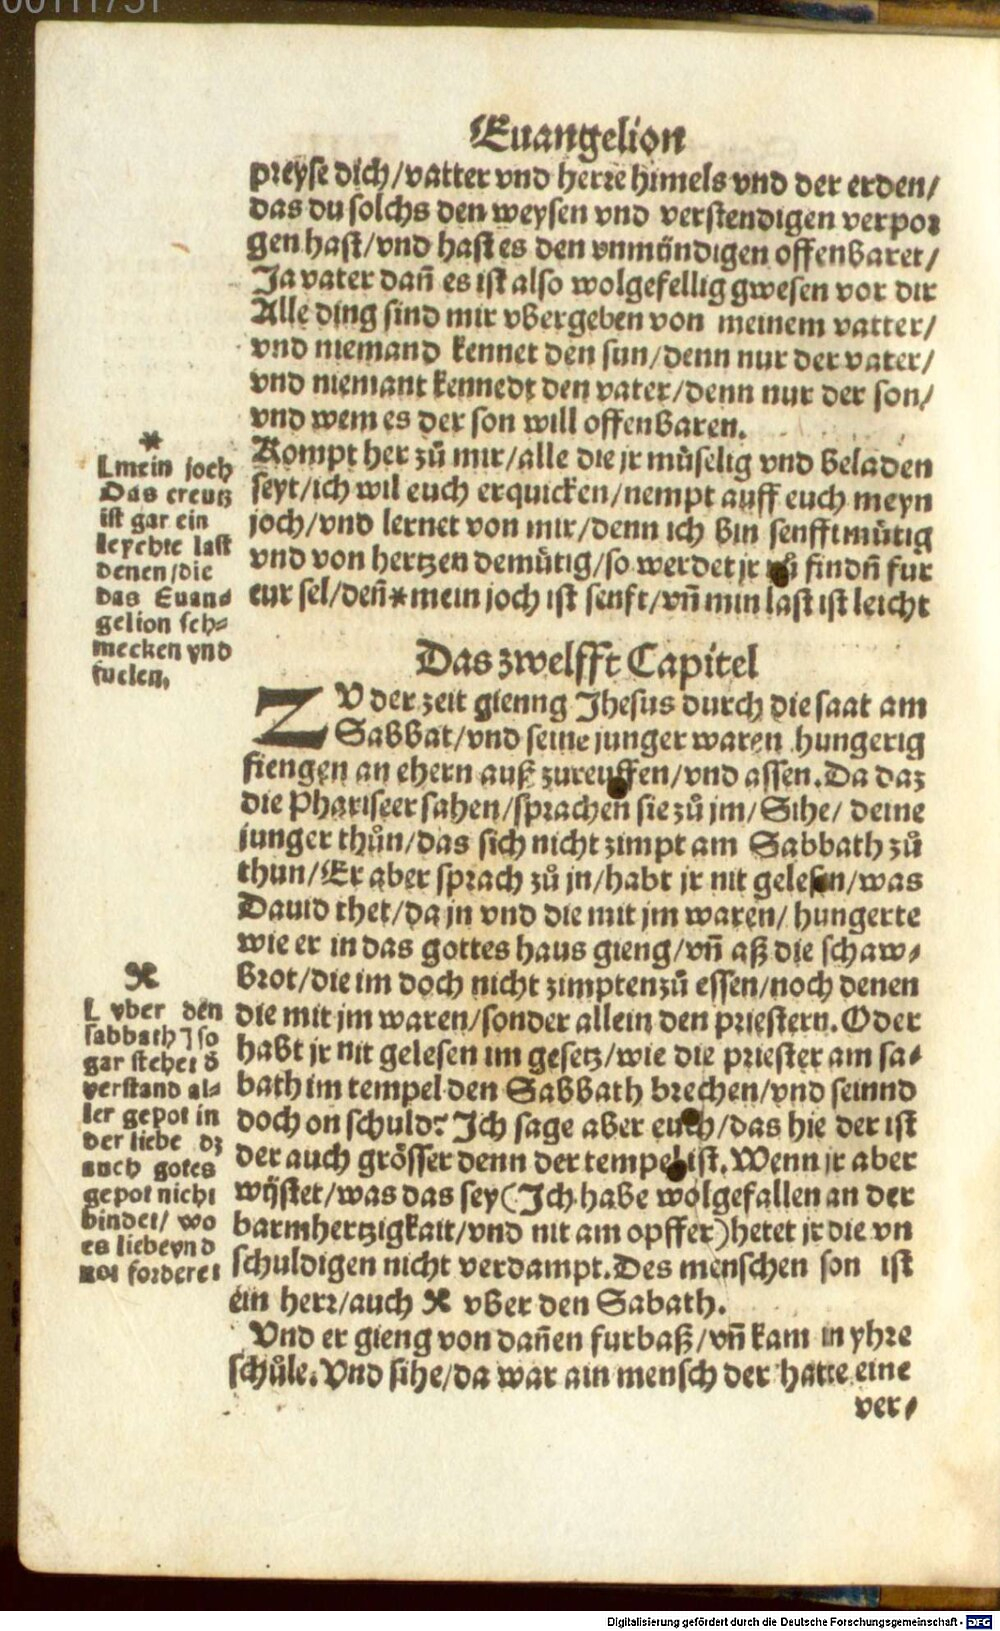 Euangelion
preyse dich/vatter vnd herre himels vnd der erden/
das du solchs den weysen vnd verstendigen verpor
gen hast/vnd hast es den vnmündigen offenbaret/
Ja vater dañ es ist also wolgefellig gwesen vor dir
Alle ding sind mir vbergeben von meinem vatter/
vnd niemand kennet den sun/denn nur der vater/
vnd niemant kennedt den vater/denn nur der son/
vnd wem es der son will offenbaren.
Kompt her zů mir/alle die jr müselig vnd beladen
seyt/ich wil euch erquicken/nempt auff euch meyn
joch/vnd lernet von mir/denn ich bin senfftmütig
vnd von hertzen demütig/so werdet jr findñ fur
eur sel/deñ*mein joch ist senft/vñ min last ist leicht
*
Lmein joch
Das creutz
ist gar ein
leychte last
denen/die
das Euan⸗
gelion sch⸗
mecken vnd
fuelen,
Das zwelfft Capitel
ZV der zeit gienng Jhesus durch die saat am
Sabbat/vnd seine junger waren hungerig
fiengen an ehern auß zureuffen/vnd assen. Da daz
die Phariseer sahen/sprachen sie zů jm/Sihe/ deine
junger thůn/das sich nicht zimpt am Sabbath zů
thun/Er aber sprach zů jn/habt jr nit gelesen/was
Dauid thet/da jn vnd die mit jm waren/ hungerte
wie er in das gottes haus gieng/vñ aß die schaw⸗
brot/die im doch nicht zimpten zů essen/noch denen
die mit jm waren/sonder allein den priestern. Oder
habt jr nit gelesen im gesetz/wie die priester am sa⸗
bath im tempel den Sabbath brechen/vnd seinnd
doch on schuld? Ich sage aber euch/das hie der ist
der auch grösser denn der tempel ist. Wenn jr aber
wistet/was das sey(Ich habe wolgefallen an der
barmhertzigkait/vnd nit am opffer)hetet jr die vn
schuldigen nicht verdampt. Des menschen son ist
ein herr/auch ⌘ vber den Sabath.
⌘
L vber den
sabbath] so
gar stehet d̄
verstand al⸗
ler gepot in
der liebe dz
auch gotes
gepot nicht
bindet/ wo
es liebe vnd
not forderet
Vnd er gieng von dañen furbaß/vñ kam in yhre
schůle. Vnd sihe/da war ain mensch der hatte eine
ver⸗
Digitalisierung gefördert durch die Deutsche Forschungsgemeinschaft - DFG